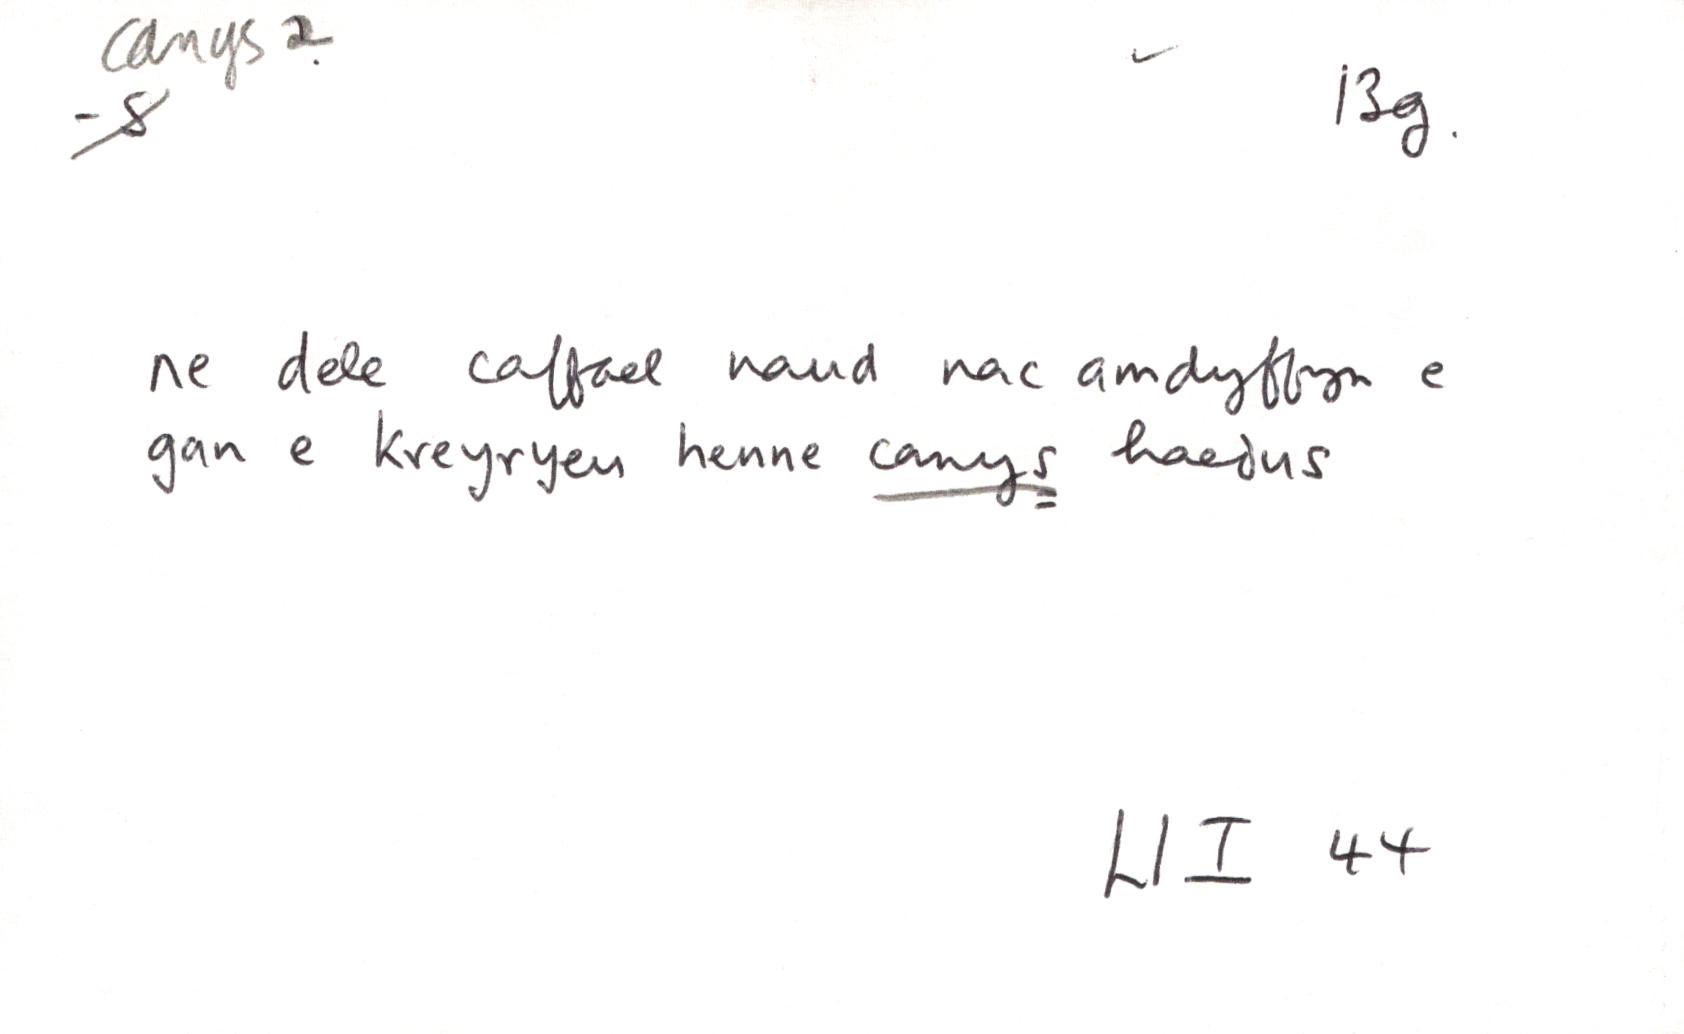 canys 2.
-s
13g.
ne dele caffael naud nac amdyffyn e
gan e kreyryeu henne canys haedus
Ll I 44